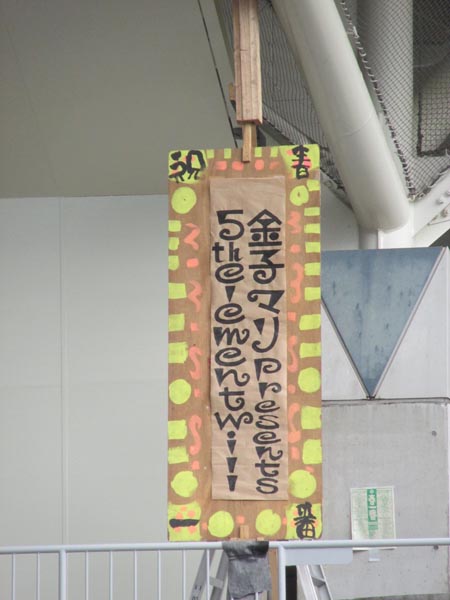 祝
春
一
番
金子マリ presents
5th element will